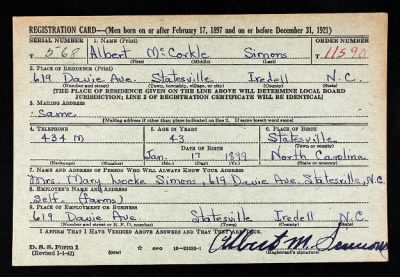 REGISTRATION CARD—(Men born on or after February 17, 1897 and on or before December 31, 1921)
SERIAL NUMBER 1. NAME (Print) ORDER NUMBER
T 568 Albert McCorkle Simons T 11590
(First) (Middle) (Last)
2. PLACE OF RESIDENCE (Print)
619 Davie Ave. Statesville Iredell N.C.
(Number and street) (Town, township, village, or city) (County) (State)
[THE PLACE OF RESIDENCE GIVEN ON THE LINE ABOVE WILL DETERMINE LOCAL BOARD
JURISDICTION; LINE 2 OF REGISTRATION CERTIFICATE WILL BE IDENTICAL]
3. MAILING ADDRESS
Same
[Mailing address if other than place indicated on line 2. If same insert word same]
4. TELEPHONE 5. AGE IN YEARS 6. PLACE OF BIRTH
434 M 43 Statesville
DATE OF BIRTH (Town or county)
Jan. 17 1899 North Carolina
(Exchange) (Number) (Mo.) (Day) (Yr.) (State or country)
7. NAME AND ADDRESS OF PERSON WHO WILL ALWAYS KNOW YOUR ADDRESS
Mrs. Mary Locke Simons, 619 Davie Ave. Statesville, N.C.
8. EMPLOYER'S NAME AND ADDRESS
Self. (farms)
9. PLACE OF EMPLOYMENT OR BUSINESS
619 Davie Ave Statesville Iredell N.C.
(Number and street or R. F. D. number) (Town) (County) (State)
I AFFIRM THAT I HAVE VERIFIED ABOVE ANSWERS AND THAT THEY ARE TRUE.
D. S. S. Form 1
(Revised 1-1-42) GPO 16—21630-1 Albert M. Simons